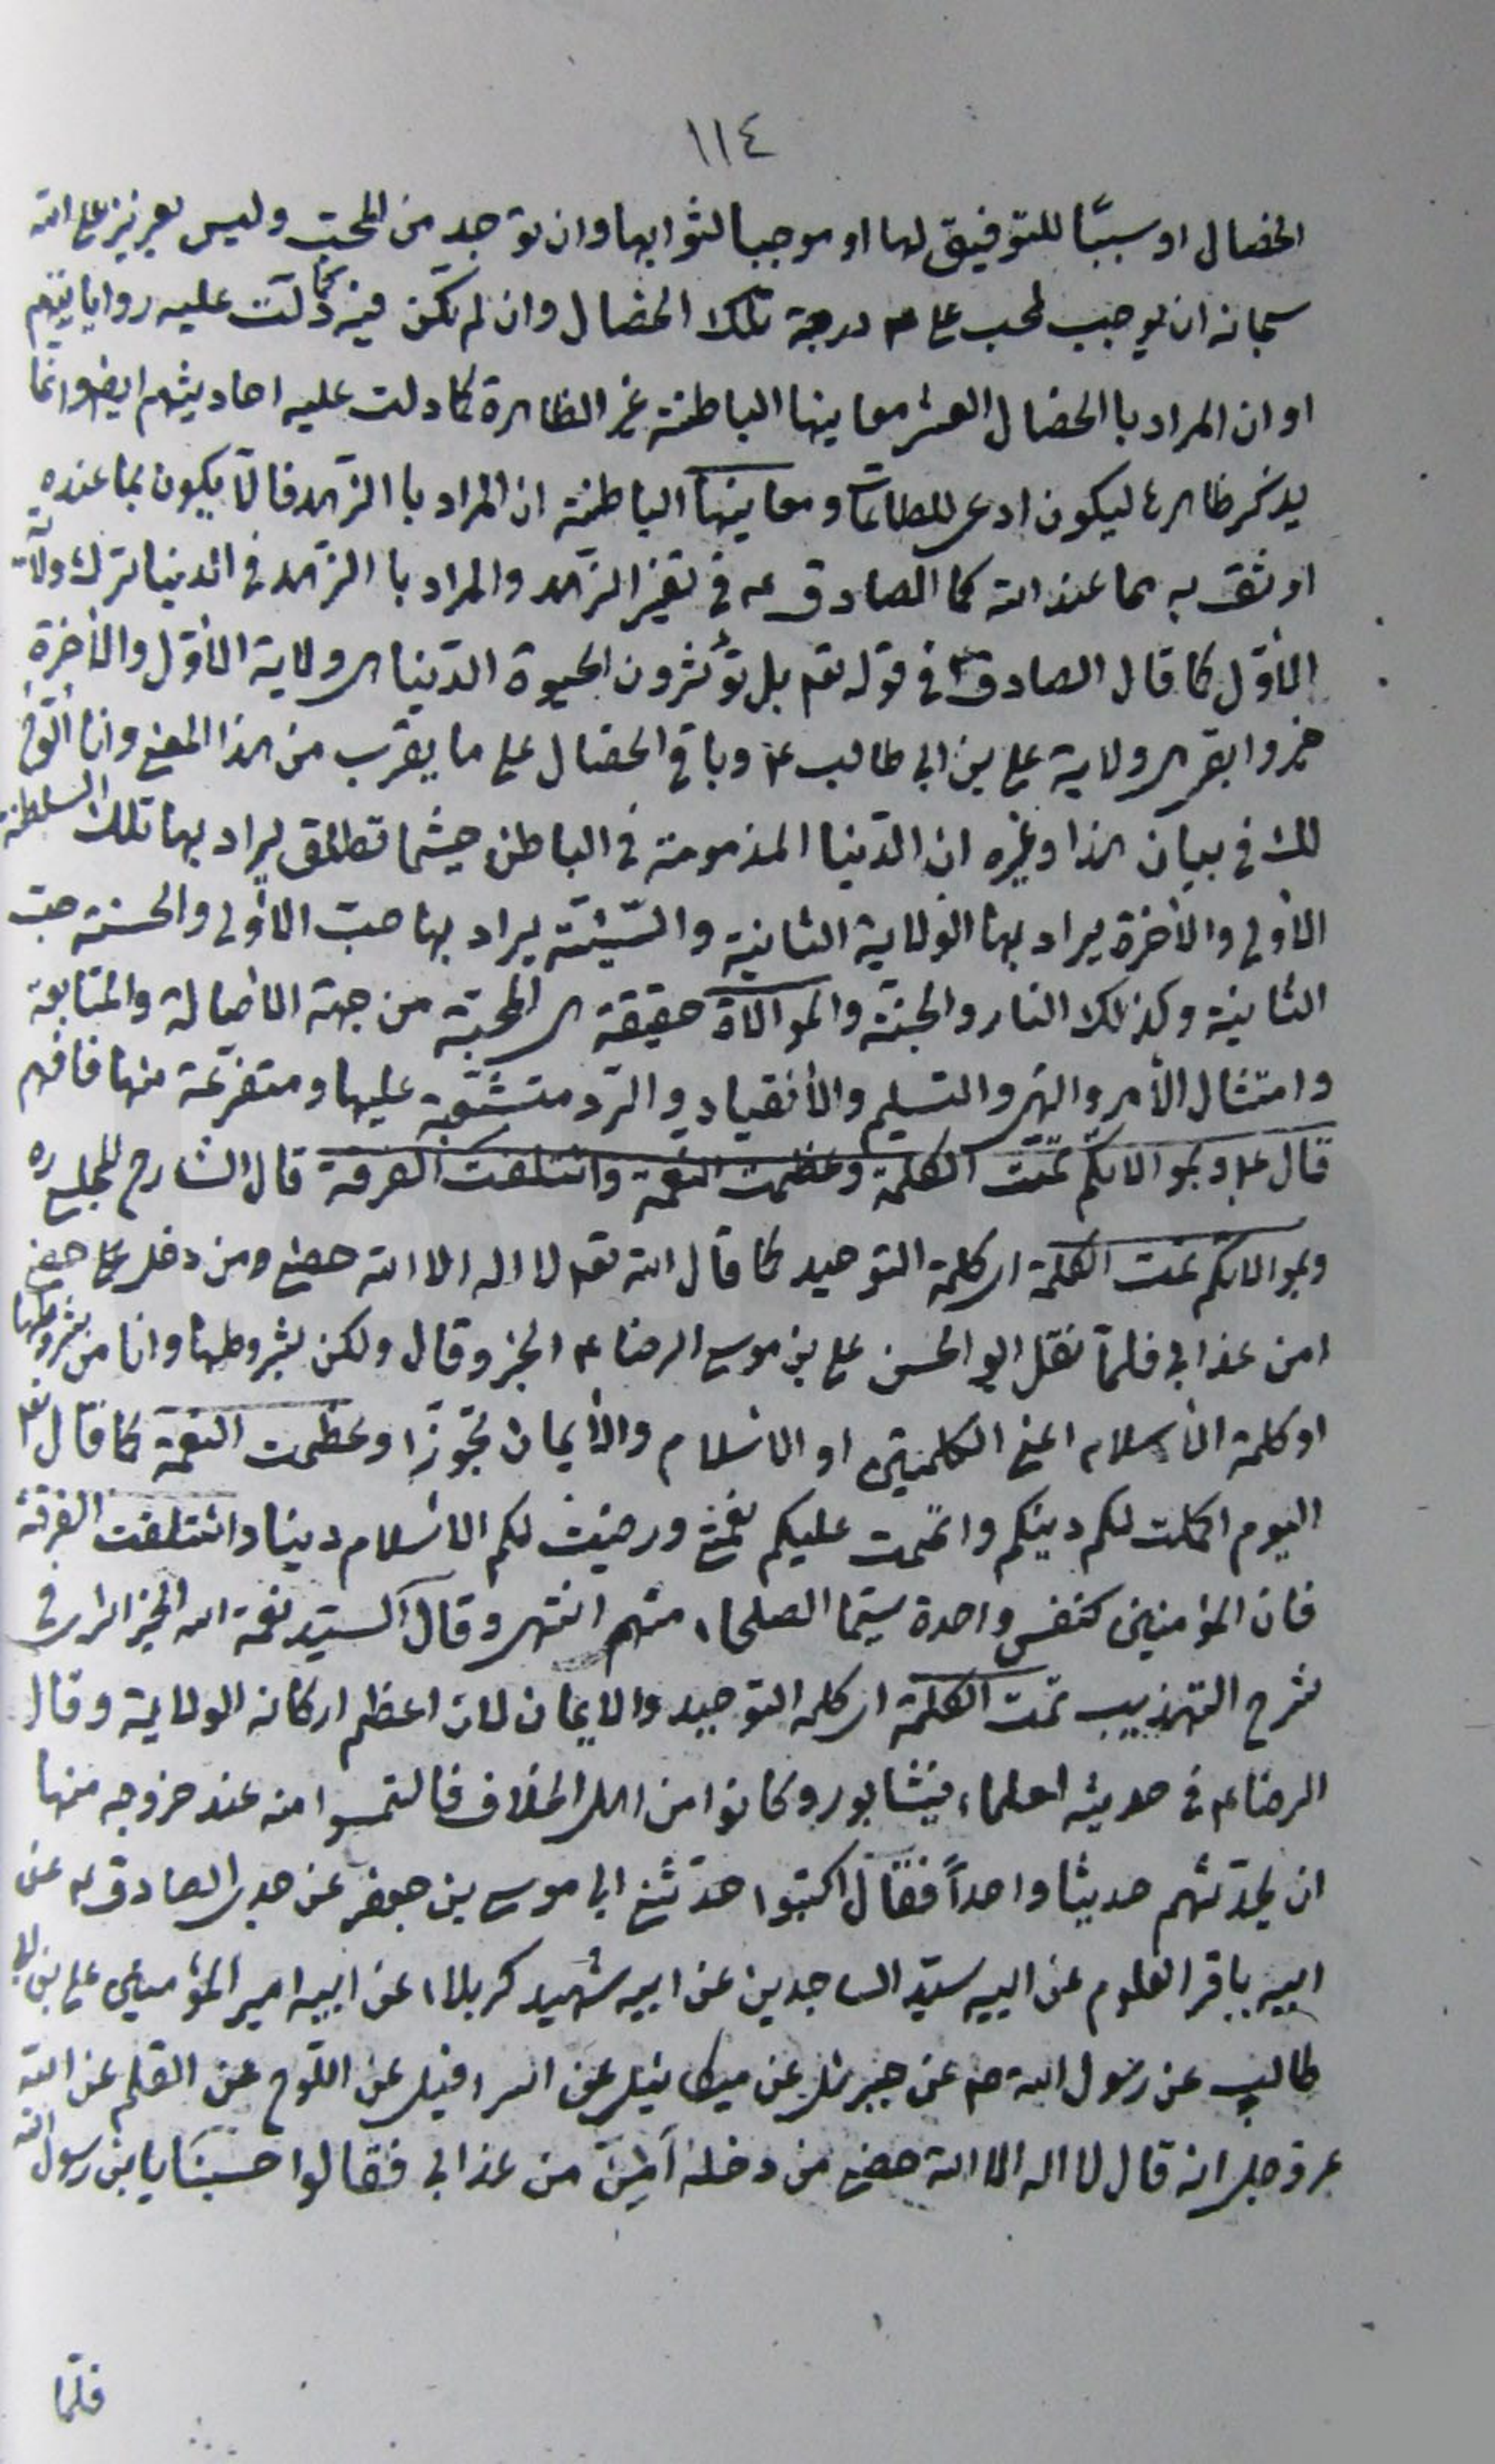 ١١٤
الخصال او سببًا للتوفيق لها او موجبا لثوابها وان توجد من المحب وليس بعزيز على الله
سبحانه ان يوجب لمحب على ع درجة تلك الخصال وان لم تكن فيه كما دلّت عليه رواياتهم
او ان المراد با الخصال العشر معاينها الباطنة غير الظاهرة كما دلت عليه احاديثهم ايضا وانما
يذكر ظاهرها ليكون ادعى للطاعات ومعانيها الباطنة ان المراد با الزهد فالّا يكون بما عنده
اوثق به مما عند الله كما الصادق ع في تفسير الزهد والمراد با الزهد في الدنيا ترك ولاية
الأوّل كما قال الصادق ع في قوله تعم بل تؤثرون الحيوة الدّنيا اى ولاية الأوّل والأخرة
خير وابقى اى ولاية على بن ابى طالب ع وباقى الخصال على ما يقرب من هذا المعنى وانا اقول
لك في بيان هذا وغيره ان الدّنيا المذمومة في الباطن حيثما تطلق يراد بها تلك السلطنة
الأولى والأخرة يراد بها الولاية الثانية والسّيئة يراد بها حبّ الأولى والحسنة حبّ
الثانية وكذلك النار والجنّة والموالاة حقيقة اى المحبّة من جهة الأصالة والمتابعة
وامتثال الأمر والنهى والتسليم والأنقياد والرّد متشعّبة عليها ومتفرّعة منها فافهم
قال ع وبموالاتكم تمّت الكلمة وعظمت النعمة وائتلفت الفرقة قال الشارح المجلسى ره
وبموالاتكم تمت الكلمة اى كلمة التوحيد كما قال الله تعم لا اله الا الله حصنى ومن دخل حصنى
امن عذابى فلمّا نقل ابو الحسن على بن موسى الرضا ع الخبر وقال ولكن بشروطها وانا من بشروطها
او كلمة الأسلام اعنى الكلمتين او الأسلام والأيمان تجوّزًا وعظمت النعمة كما قال تعم
اليوم اكملت لكم دينكم واتممت عليكم نعمتى ورضيت لكم الاسلام دينا وائتلفت الفرقة
فان المؤمنين كنفس واحدة سيّما الصلحاء منهم انتهى وقال السيّد نعمة الله الجزائرى في
شرح التهذيب تمت الكلمة اى كلمه التوحيد والايمان لان اعظم اركانه الولاية وقال
الرضا ع في حديثه لعلماء نيشابور وكانوا من اهل الخلاف فالتمسوا منه عند خروجه منها
ان يحدّثهم حديثا واحداً فقال اكتبوا حدّثنى ابى موسى بن جعفر عن جدى الصادق ع عن
ابيه باقر العلوم عن ابيه سيّد الساجدين عن ابيه شهيد كربلاء عن ابيه امير المؤمنين على بن ابى
طالب عن رسول الله ص عن جبرئيل عن ميكائيل عن اسرافيل عن اللّوح عن القلم عن الله
عز وجل انه قال لا اله الا الله حصنى من دخله أمن من عذابى فقالوا حسبنا يا بن رسول الله
فلمّا